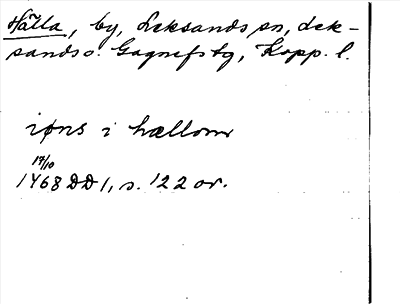 Hälla, by, Leksands sn, Lek-
sands o. Gagnefs tg, Kopp. l.
iøns i hællom
17/10
1468 DD 1, s. 122 or.